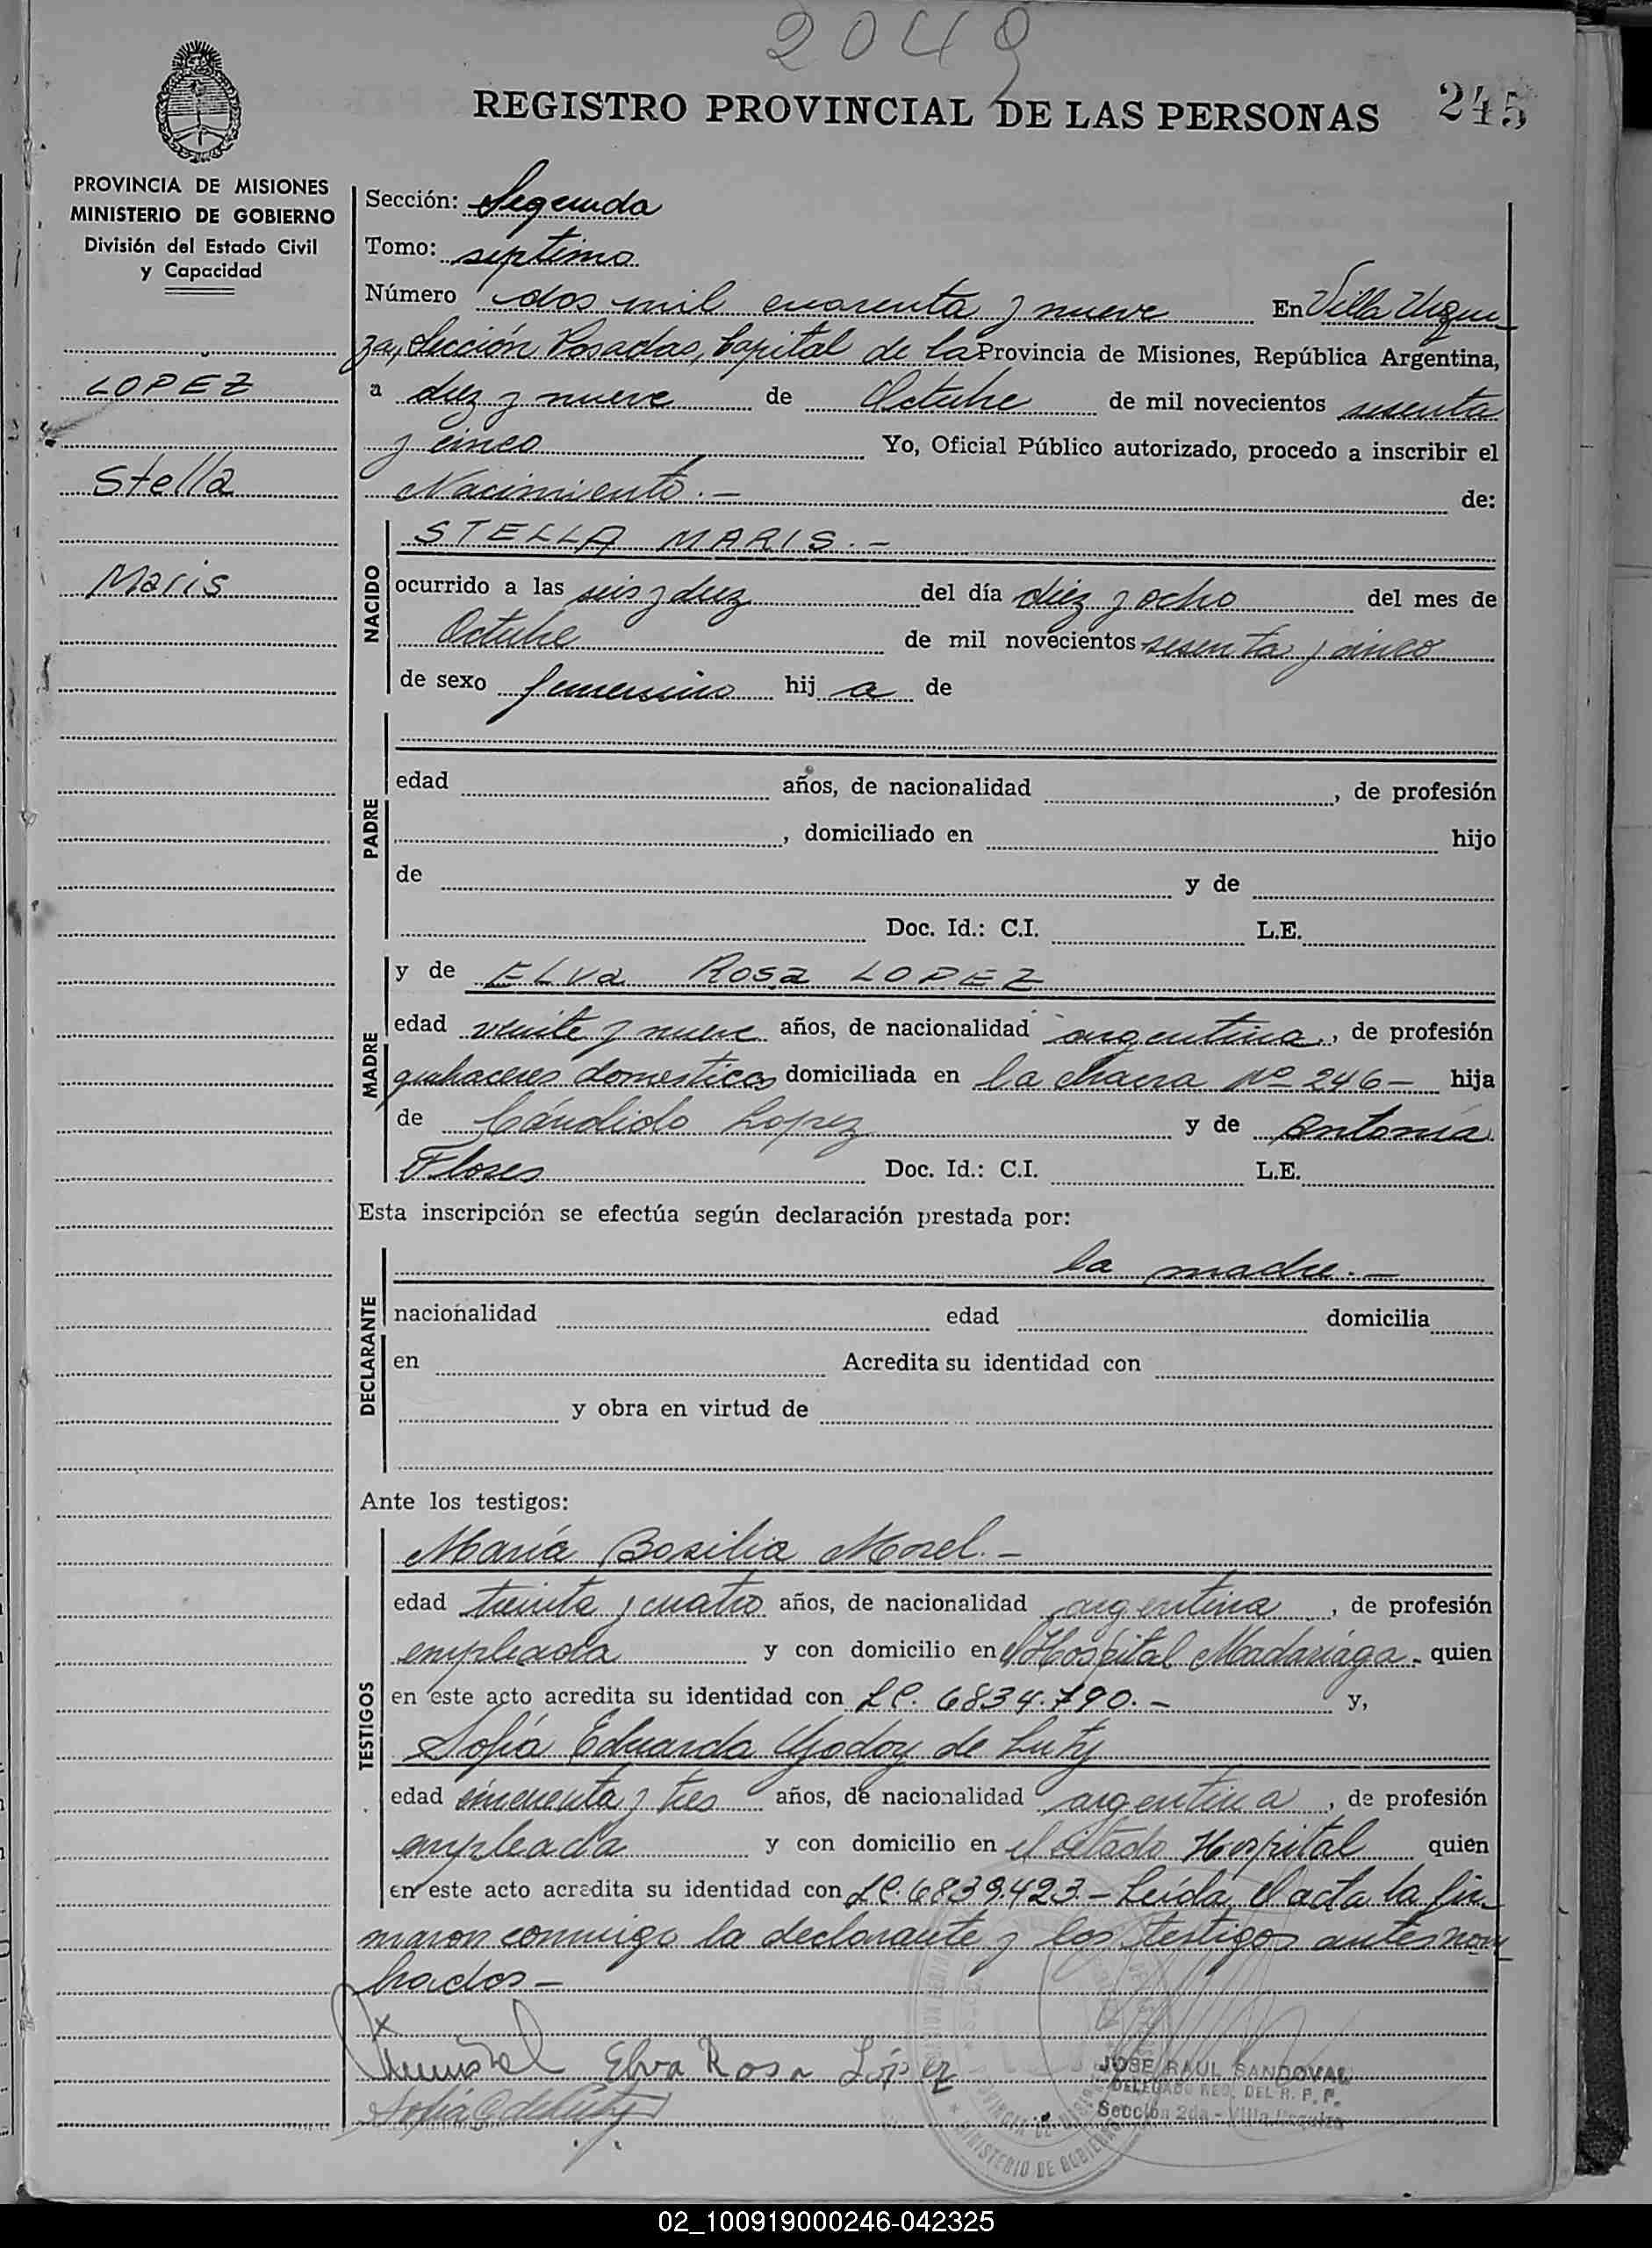 2049
REGISTRO PROVINCIAL DE LAS PERSONAS 245
PROVINCIA DE MISIONES
MINISTERIO DE GOBIERNO
División del Estado Civil
y Capacidad
LOPEZ
Stella
Maris
Sección: Segunda
Tomo: septimo
Número dos mil cuarenta y nueve En Villa Urqui
za, Sección Posadas, Capital de la Provincia de Misiones, República Argentina,
a diez y nueve de Octubre de mil novecientos sesenta
y cinco Yo, Oficial Público autorizado, procedo a inscribir el
Nacimiento.- de:
NACIDO
STELLA MARIS.-
ocurrido a las seis y diez del día diez y ocho del mes de
Octubre de mil novecientos sesenta y cinco
de sexo femenino hij a de
PADRE
edad años, de nacionalidad , de profesión
, domiciliado en hijo
de y de
Doc. Id.: C.I. L.E.
MADRE
y de ELva Rosa LOPEZ
edad veinte y nueve años, de nacionalidad argentina, de profesión
quehaceres domesticos domiciliada en la chacra Nº 246- hija
de Cándido Lopez y de Antonia
Flores Doc. Id.: C.I. L.E.
Esta inscripción se efectúa según declaración prestada por:
DECLARANTE
la madre.-
nacionalidad edad domicilia
en Acredita su identidad con
y obra en virtud de
Ante los testigos:
TESTIGOS
María Basilia Morel.-
edad treinta y cuatro años, de nacionalidad argentina, de profesión
empleada y con domicilio en el Hospital Madariaga- quien
en este acto acredita su identidad con LC. 6834.790.- y,
Sofía Eduarda Godoy de Lutz
edad cincuenta y tres años, de nacionalidad argentina, de profesión
empleada y con domicilio en el citado Hospital quien
en este acto acredita su identidad con LC. 6839.423.- Leída el acta la fir
maron conmigo la declarante y los testigos antes nom
brados-
x
Elva Rosa López
JOSE RAUL SANDOVAL
DELEGADO REG. DEL R. P. P.
Sección 2da - Villa Urquiza
MINISTERIO DE GOBIERNO
02_100919000246-042325